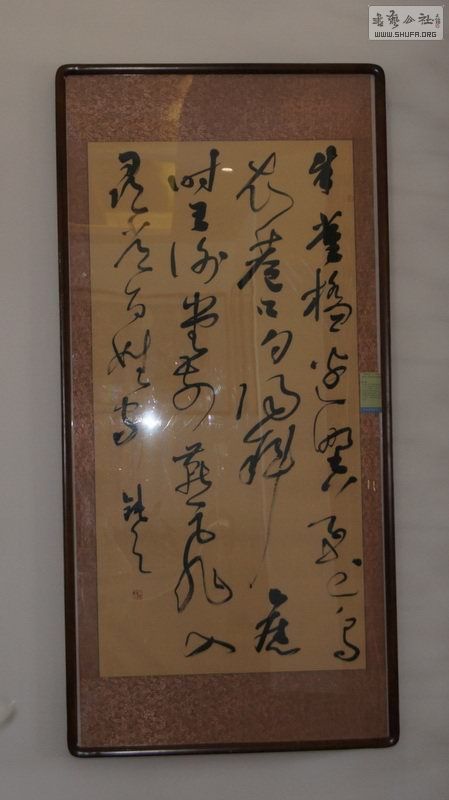 書艺公社
WWW.SHUFA.ORG
朱雀橋边野草花烏
衣巷口夕陽斜舊
時王谢堂前燕飛入
尋常百姓家